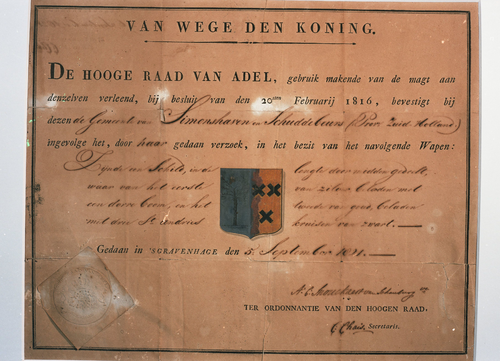 VAN WEGE DEN KONING.
DE HOOGE RAAD VAN ADEL, gebruik makende van de magt aan
denzelven verleend, bij besluit van den 20sten Februarij 1816, bevestigt bij
dezen de Gemeente van Simonshaven en Schuddebeurs (Prov: Zuid Holland)
ingevolge het, door haar gedaan verzoek, in het bezit van het navolgende Wapen:
Zynde een Schild, in de lengte door midden gedeeld,
waar van het eerste van zilver beladen met
een dorre boom, en het tweede van goud, beladen
met drie St. Andries kruisen van zwart.
Gedaan in 'SGRAVENHAGE den 5 September
TER ORDONNANTIE VAN DEN HOOGEN RAAD,
Secretaris.